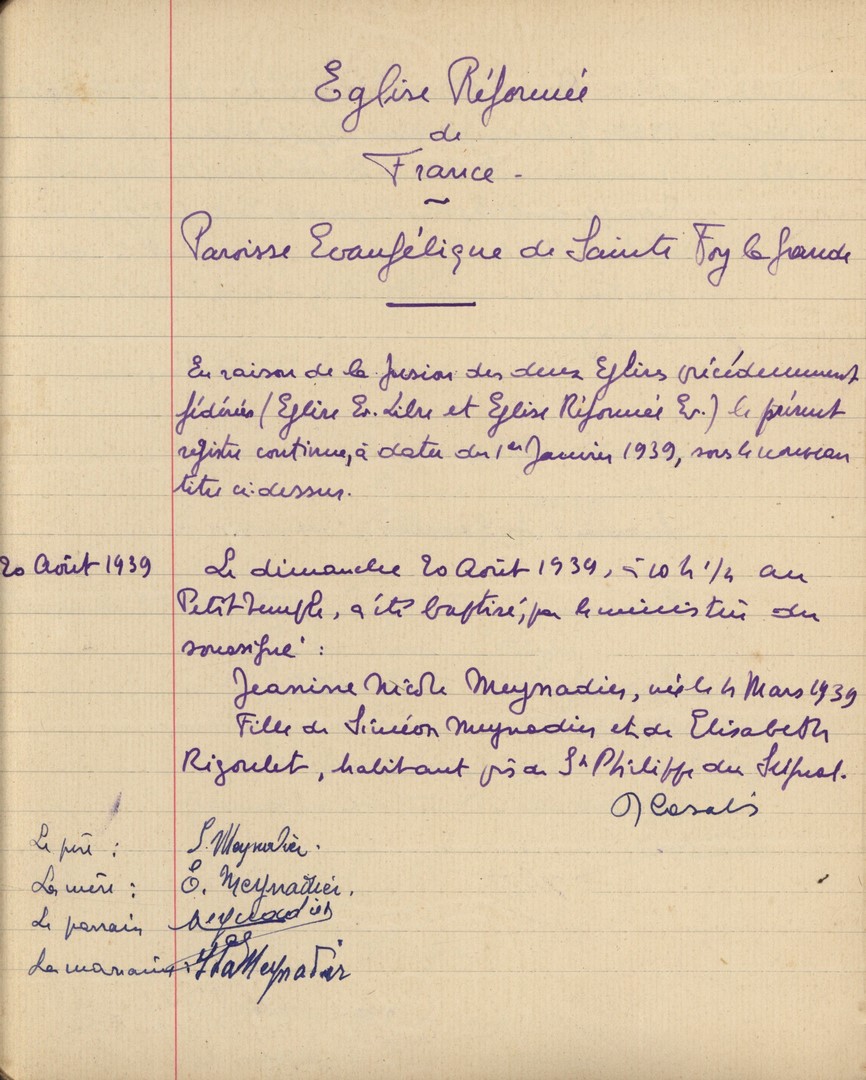 Eglise Réformée
de
France -
~
Paroisse Evangélique de Sainte Foy la Grande
En raison de la fusion des deux Eglises précédemment
fédérées (Eglise Ev. Libre et Eglise Réformée Ev.) le présent
registre continue, à dater du 1er Janvier 1939, sous le nouveau
titre ci-dessus.
20 Août 1939
Le dimanche 20 Août 1939, à 10 h 1/4 au
Petit temple, a été baptisé, par le ministère du
soussigné :
Jeanine Nicole Meynadier, née le 4 Mars 1939
Fille de Siméon Meynadier et de Elisabeth
Rigoulet, habitant près de St Philippe du Seignal.
Casalis
Le père : S. Meynadier.
La mère : E. Meynadier.
Le parrain Meynadier
La marraine : Meynadier